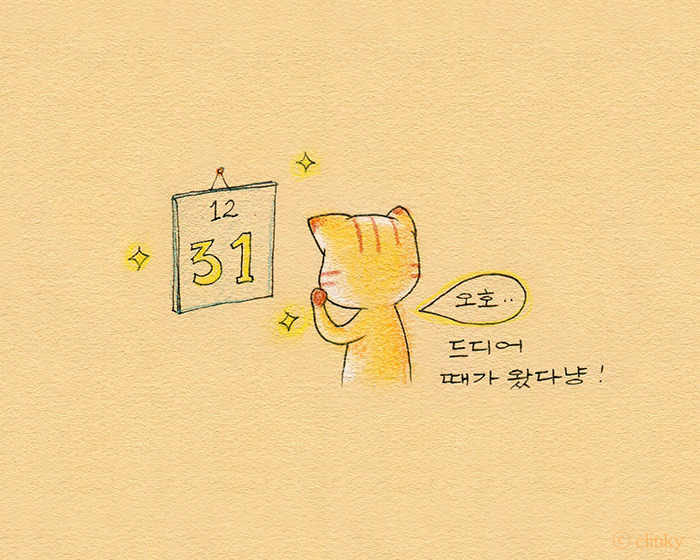 12
31
오호..
드디어
때가 왔다냥!
ⓒ clinky